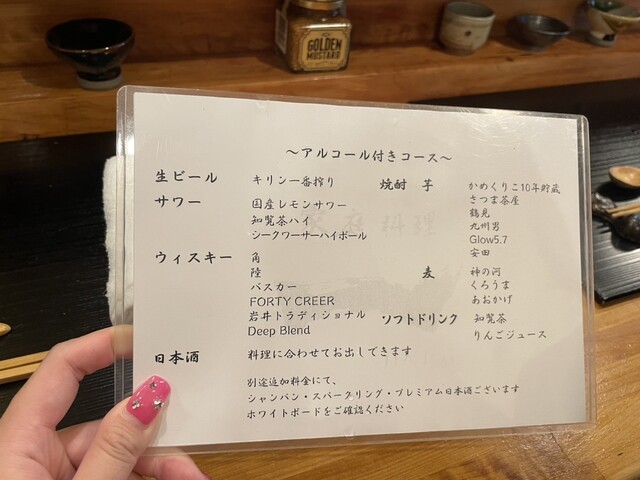 GOLDEN
MUSTARD
～アルコール付きコース～
生ビール キリン一番搾り
サワー 国産レモンサワー
知覧茶ハイ
シークワーサーハイボール
ウィスキー 角
陸
バスカー
FORTY CREER
岩井トラディショナル
Deep Blend
日本酒 料理に合わせてお出しできます
別途追加料金にて、
シャンパン・スパークリング・プレミアム日本酒ございます
ホワイトボードをご確認ください
焼酎 芋 かめくりこ10年貯蔵
さつま茶屋
鶴見
九州男
Glow5.7
安田
麦 神の河
くろうま
あおかげ
ソフトドリンク 知覧茶
りんごジュース